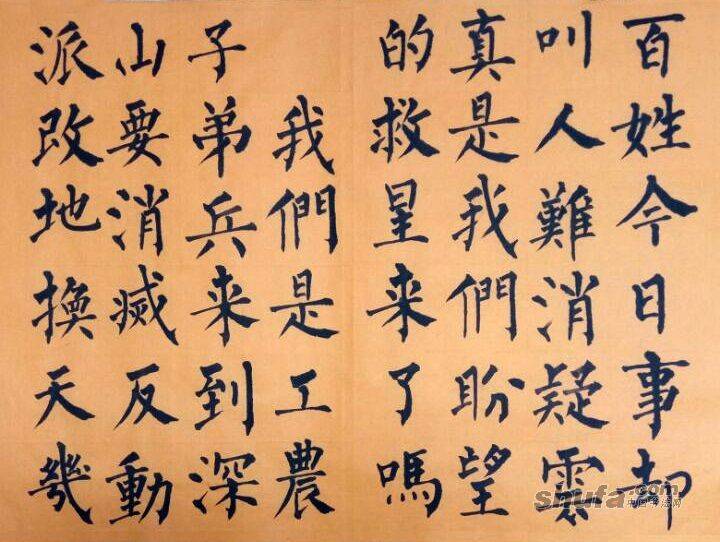 百姓今日事却
叫人難消疑雲
真是我們盼望
的救星来了嗎
我們是工農
子弟兵来到深
山要消滅反動
派改地換天幾
shufa.com
中国书法网